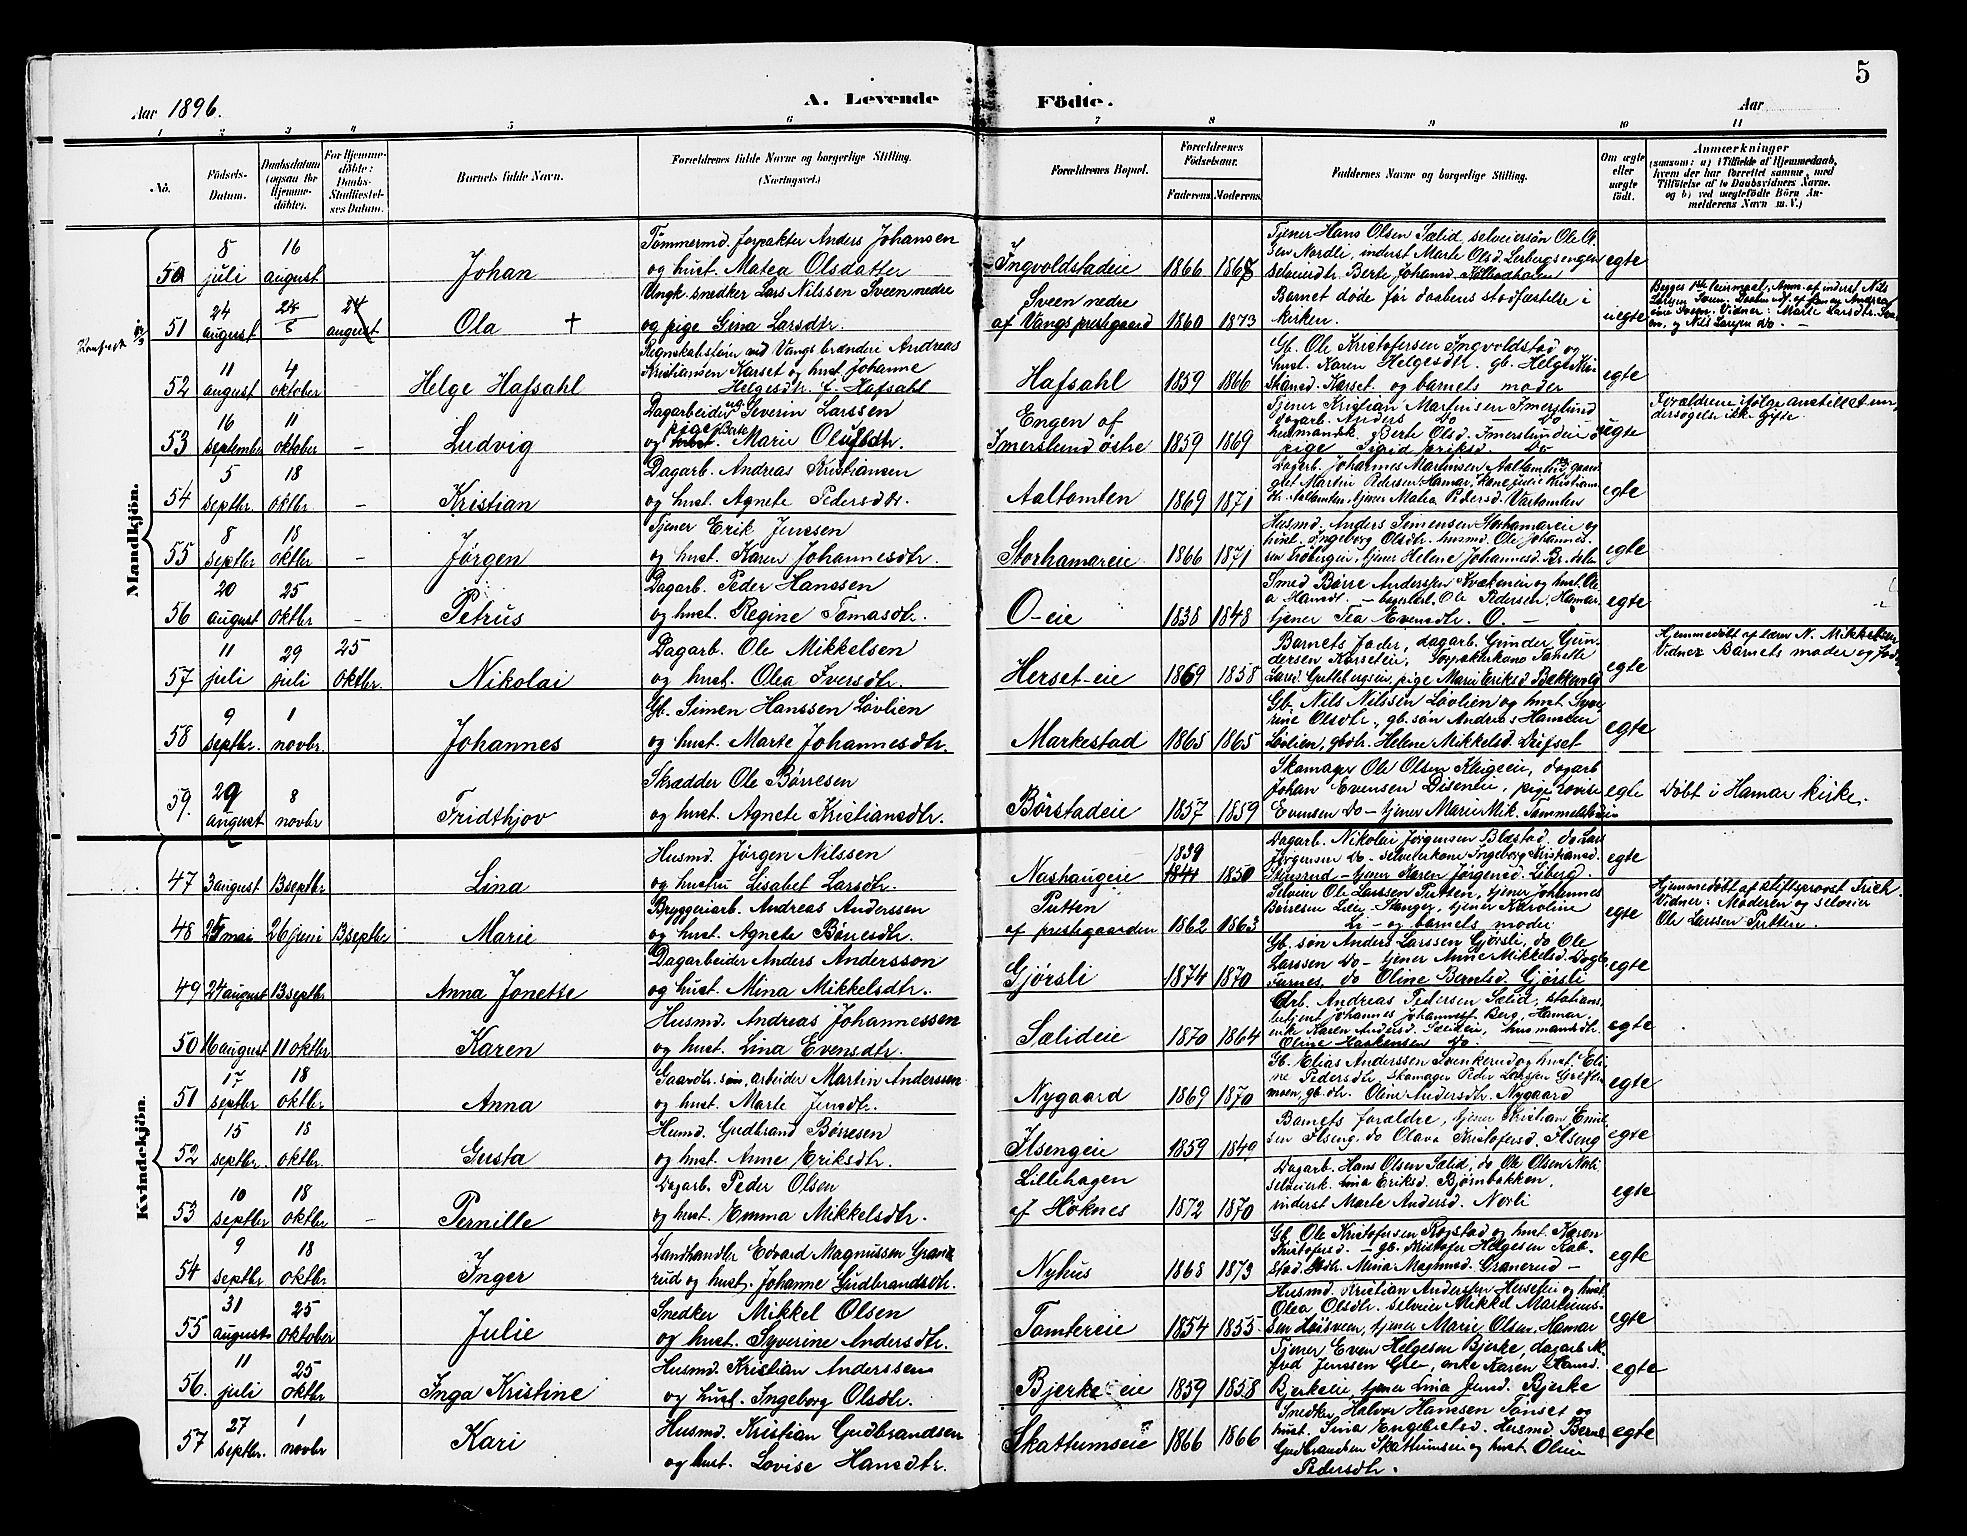 5
Aar 1896.
A. Levende Födte.
Aar
1 2 3 4 5 6 7 8 9 10 11
No.
Födsels-Datum.
Daabsdatum (ogsaa for Hjemme-döbte).
For Hjemme-döbte: Daabs-Stadfæstel-ses Datum.
Barnets fulde Navn.
Forældrenes fulde Navne og borgerlige Stilling. (Næringsvei.)
Forældrenes Bopæl.
Forældrenes Födselsaar.
Faderens Moderens
Faddernes Navne og borgerlige Stilling.
Om ægte eller uægte födt.
Anmærkninger (saasom: a) i Tilfælde af Hjemmedaab, hvem der har forrettet samme, med Tilföielse af to Daabsvidners Navne, og b) ved uægtefödte Börn Anmelderens Navn m. V.)
Mandkjön.
50 8 juli 16 august Johan
Tømmermd. forpakter Anders Johansen
og hust. Matea Olsdatter
Ingvoldstadeie 1866 1868
Tjener Hans Olsen Sælid, selveiersøn Ole
sen Nordli, inderst Marte Olsd. Lerbergsengen
selveierdtr. Berte Johansd.
egte
51 24 august 24/8 24 august Ola †
Ungk. snedker Lars Nilssen Sveen nedre
og pige Gina Larsdtr.
Sveen nedre
af Vangs prestegaard 1860 1873
Barnet døde før daabens stadfestelse i
kirken.
uegte
Begges 1ste leiermaal, Anm. af inderst Nils
Larsen Sveen.
52 11 august 4 oktober Helge Hafsahl
Regnskabsfører ved Vangs brænderi Andreas
Kristiansen Karset og hust. Johanne
Helgesdtr. f. Hafsahl
Hafsahl 1859 1866
Gb. Ole Kristofersen Ingvoldstad og
hust. Karen Helgesdtr. gb. Helge Kri
stiansd. Karset og barnets moder
egte
53 16 september 11 oktober – Ludvig
Dagarbeider ug. Severin Larssen
og pige Berte Marie Olsdtr.
Engen af
Imerslund østre 1859 1869
Tjener Kristian Martinsen Imerslund
dagarb. Anders Do – Do –
husmandsk. Berte Olsd. Imerslundeie
pige Sigrid Eriksd. Do
uegte
Forældrene ifølge anstillet un-
dersøgelse ikke gifte.
54 5 septbr. 18 oktbr. – Kristian
Dagarb. Andreas Kristiansen
og hust. Agnete Pedersdtr.
Aaltomten 1869 1871
Dagarb. Johannes Martinsen Aaltomten, gaard
gut Martin Pedersen Hamar, kone Julie Kristians
d. Aaltomten, tjener Matea Pedersd. Vartomten
egte
55 8 septbr. 18 oktbr. – Jørgen
Tjener Erik Jenssen
og hust. Karen Johannesdtr.
Storhamareie 1866 1871
Husmd. Anders Simensen Storhamareie og
hust. Ingeborg Olsdtr. husmd. Ole Johannes
sen Frøbergeie, tjener Helene Johannesd.
egte
56 20 august 25 oktbr. Petrus
Dagarb. Peder Hanssen
og hust. Regine Tomasdtr.
O-eie 1838 1848
Smed Børre Anderssen Kvækeneie og hust. Ole
a Hansdtr. – Ole Pedersen, Hamar,
tjener Tea Evensdtr. O. –
egte
57 11 juli 29 juli 25 oktbr. Nikolai
Dagarb. Ole Mikkelsen
og hust. Olea Iversdtr.
Herset-eie 1869 1858
Barnets fader, dagarb. Gunder Gun-
dersen Karseteie, forpakterkone Janette
Larsd. Gullebergseie, pige Marie Eriksd. Bækkevold
egte
Hjemmedøbt af lærer N. Mikkelsen
Vidner Barnets moder og fader
58 9 septbr. 1 novbr. Johannes
Gb. Simen Hanssen Løvlien
og hust. Marte Johannesdtr.
Markestad 1865 1865
Gb. Nils Nilssen Løvlien og hust. Syve
rine Olsdtr., gb. søn Andreas Hanssen
Løvlien, gbdtr. Helene Mikkelsd. Vifset
egte
59. 29 august 8 novbr Fridthjov
Skrædder Ole Børresen
og hust. Agnete Kristiansdtr.
Børstadeie 1857 1859
Skomager Ole Olsen Klugeeie, dagarb
Johan Evensen Diseneie, pige Lovise
Evensen Do – tjener Marie Mik.
egte
Døbt i Hamar kirke.
Kvindekjön.
47 3 august 13 septbr. Lina
Husmd. Jørgen Nilssen
og hustru Lisabet Larsdtr.
Nashaugeie 1839 1841 1850
Dagarb. Nikolai Jørgensen Blæstad, do Lars
Jørgensen Do – selveierkone Ingeborg Kristiansd.
Stiusrud – tjener Karen Jørgensd. Liberg.
egte
48 25 mai 26 juni 13 septbr Marie
Bryggeriarb. Andreas Anderssen
og hust. Agnete Børresdtr.
Putten
af prestegaarden 1862 1863
Selveier Ole Larssen Putten, tjener Johannes
Børresen Lieie – Stange, tjener Karoline
Li – og barnets moder
egte
Hjemmedøbt af stiftsprovst Frich
Vidner: Moderen og selveier
Ole Larssen Putten.
49 24 august 13 septbr Anna Jonette
Dagarbeider Anders Andersson
og hust. Mina Mikkelsdtr.
Gjørsli 1874 1870
Gb. søn Anders Larssen Gjørsli, do Ole
Larssen Do – tjener Anne Mikkelsd.
Furnes, do Oline Berntsd. Gjørsli
egte
50 16 august 11 oktbr. Karen
Husmd. Andreas Johannessen
og hust. Lina Evensdtr.
Sælideie 1870 1864
Arb. Andreas Pedersen Sælid, stations
betjent Johannes Johannes. Berg, Hamar,
enke Karen Andersd. Sælideie, husmandsdtr.
Oline Haakensen Do. –
egte
51 17 septbr 18 oktbr. Anna
Gaardbr. søn, arbeider Martin Anderssen
og hust. Marte Jensdtr.
Nygaard 1869 1870
Gb. Elias Anderssen Svenkerud og hust. Eli
ne Pedersdtr, skomager Peder Larssen
moen, gb. dtr. Oline Andersdtr. Nygaard
egte
52 15 septbr. 18 oktbr. Gusta
Husmd. Gudbrand Børresen
og hust. Anne Eriksdtr.
Ilsengeie 1859 1849
Barnets foraldre, tjener Kristian Emil
sen Ilseng, do Olava Kristofersd. Ilseng
egte
53 10 septbr 18 oktbr. – Pernille
Dagarb. Peder Olsen
og hust. Emma Mikkelsdtr.
Lillehagen
af Høknes 1872 1870
Dagarb. Hans Olsen Sælid, do Ole Olsen Norli
selveierk. Lina Eriksd. Bjørnbakken,
inderst Marte Andersd. Norli
egte
54 9 septbr 18 oktbr. Inger
Landhandler Edvard Magnussen Grane
rud og hust. Johanne Gudbrandsdtr.
Nyhus 1868 1873
Gb. Ole Kristofersen Rogstad og hust. Karen
Kristofersd. – gb. Kristofer Helgesen Kab-
stad, Mina Magnusd. Granerud –
egte
55 31 august 25 oktober Julie
Snedker Mikkel Olsen
og hust. Syverine Andersdtr.
Tomtereie 1854 1855
Husmd. Kristian Anderssen Herseteie og hust.
Olea Olsdtr. selveier Mikkel Martinus-
sen Høisveen, tjener Marie Olsen, Hamar
egte
56. 11 juli 25 oktbr Inga Kristine
Husmd. Kristian Anderssen
og hust. Ingeborg Olsdtr.
Bjerke-eie 1859 1858
Tjener Even Helgesen Bjerke, dagarb. Al
fred Jenssen Gte, enke Karen Hansd.
Bjerkeeie, tjener Lina Jensd. Bjerke
egte
57 27 septbr. 1 novbr Kari
Husmd. Kristian Gudbrandsen
og hust. Lovise Hansdtr.
Skattumseie 1866 1866
Snedker Halvor Hanssen Tønset og
hust. Sina Engebretsd. Husmd. Bernt
Gudbrandsen Skattumseie og hust. Oline
Pedersdtr.
egte